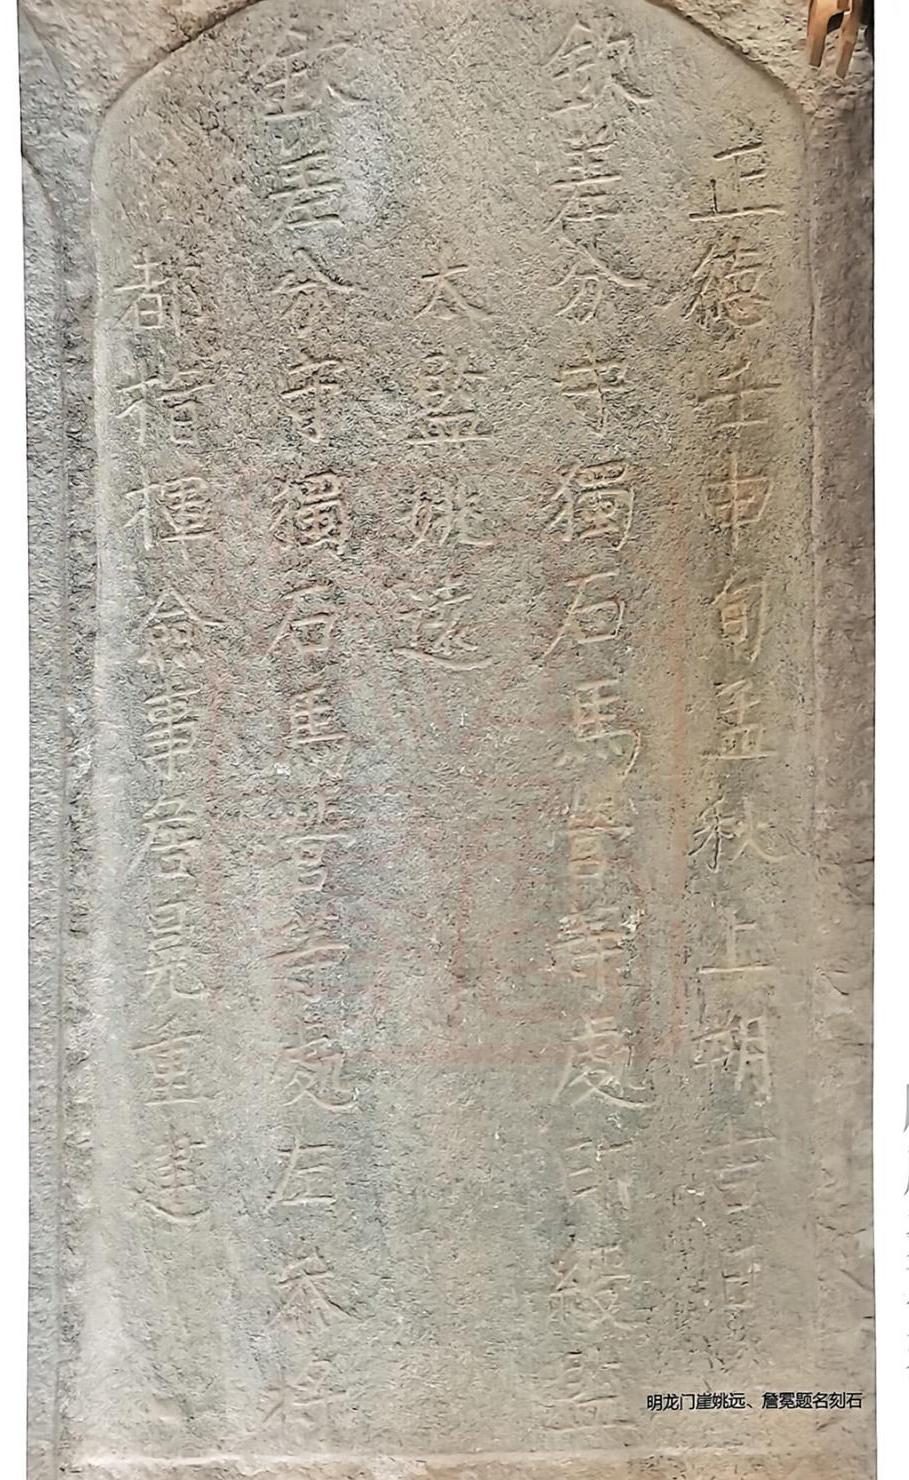 正德壬申旬孟秋上朔吉日
欽差分守獨石馬營等處印綬監
太監姚遠
欽差分守獨石馬營等處左參將
都指揮僉事詹冕重建
明龙门崖姚远、詹冕题名刻石